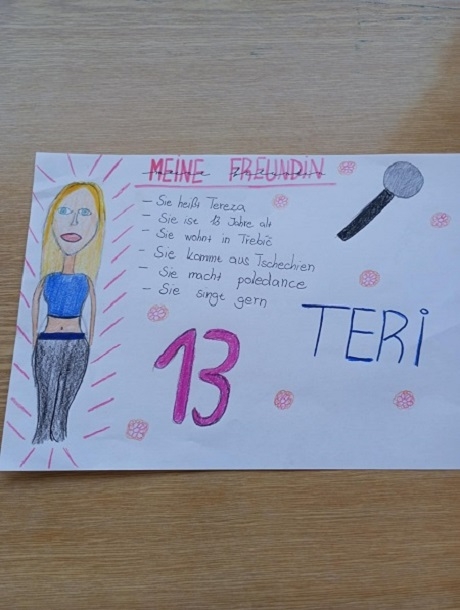 MEINE FREUNDIN
- Sie heißt Tereza
- Sie ist 13 Jahre alt
- Sie wohnt in Třebíč
- Sie kommt aus Tschechien
- Sie macht poledance
- Sie singt gern
TERi
13